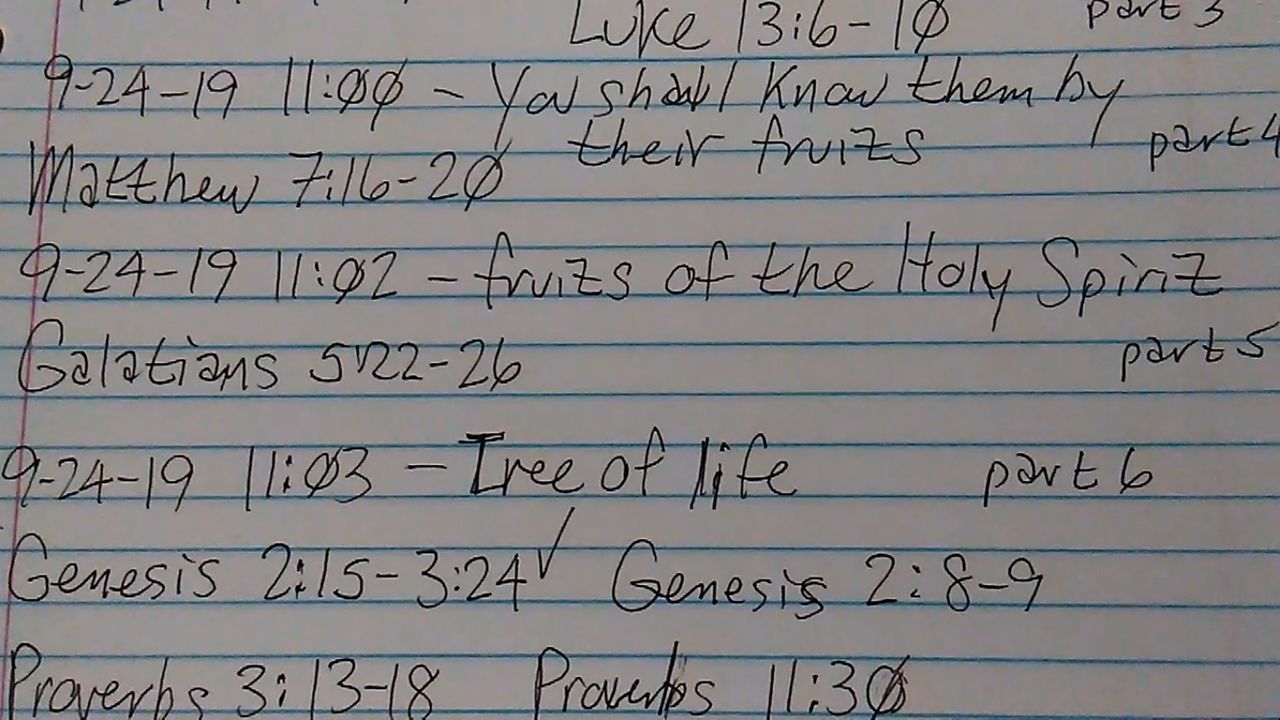 Luke 13:6-10 part 3
9-24-19 11:00 - You shall know them by
their fruits part 4
Matthew 7:16-20
9-24-19 11:02 - fruits of the Holy Spirit
Galatians 5:22-26 part 5
9-24-19 11:03 - Tree of life part 6
Genesis 2:15-3:24✓ Genesis 2:8-9
Proverbs 3:13-18 Proverbs 11:30